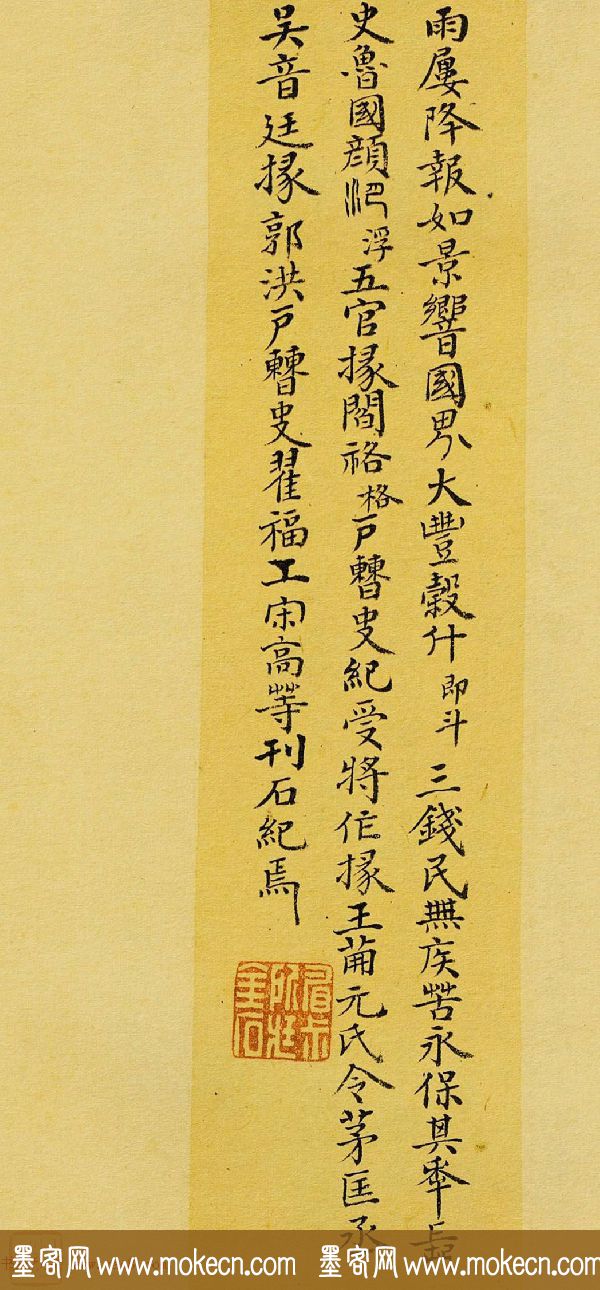 雨屢降報如景響國界大豐穀什即斗三錢民無疾苦永保其秊長
史魯國顏浮五官掾閻祫格戸曹史紀受將作掾王萠元氏令茅匡丞
吳音廷掾郭洪戸曹史翟福工宋高等刊石紀焉
墨客网 www.mokecn.com 墨客网 www.mokecn.com